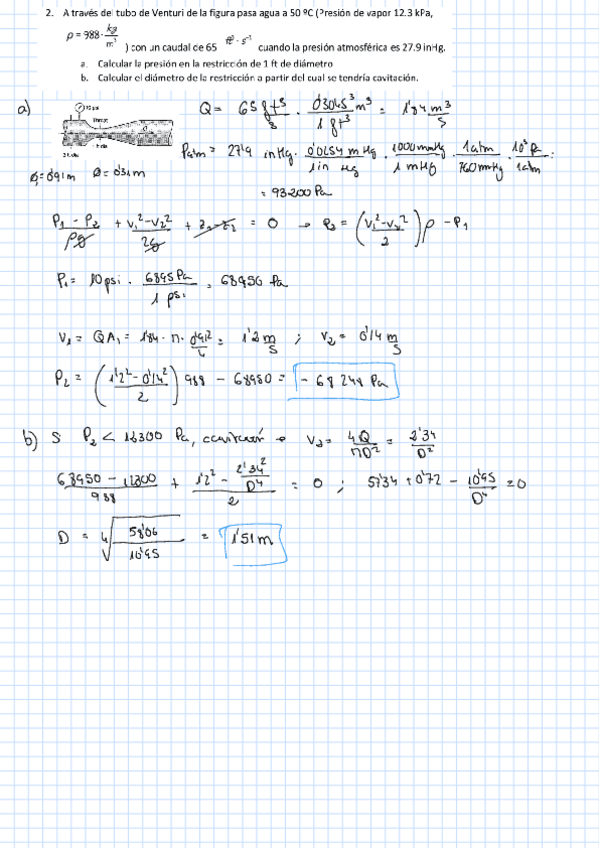 2. A través del tubo de Venturi de la figura pasa agua a 50 ºC (Presión de vapor 12.3 kPa,
ρ = 988 · kg/m³ ) con un caudal de 65 ft³ · s⁻¹ cuando la presión atmosférica es 27.9 inHg.
a. Calcular la presión en la restricción de 1 ft de diámetro
b. Calcular el diámetro de la restricción a partir del cual se tendría cavitación.
a)
Q = 65 ft³/s · 0'3048³ m³ / 1 ft³ = 1'84 m³/s
Patm = 27'9 inHg · 0'0254 m Hg / 1 in Hg · 1000 mmHg / 1 mHg · 1 atm / 760 mmHg · 10⁵ Pa / 1 atm =
Ø = 0'31 m
= 93200 Pa
P₁ - P₂ / ρg + v₁² - v₂² / 2g + z₁ - z₂ = 0 → P₂ = (v₁² - v₂² / 2) ρ - P₁
P₁ = 10 psi · 6895 Pa / 1 psi = 68950 Pa
V₁ = QA₁ = 1'84 · π · 0'91² / 4 = 1'2 m/s ; V₂ = 0'14 m/s
P₂ = (1'2² - 0'14² / 2) 988 - 68950 = - 68248 Pa
b) S P₂ < 12300 Pa, cavitación → V₂ = 4Q / πD² = 2'34 / D²
68950 - 12300 / 988 + 1'2² - 2'34² / D⁴ / 2 = 0 ; 57'34 + 0'72 - 10'95 / D⁴ = 0
D = ⁴√ 58'06 / 10'95 = 1'51 m